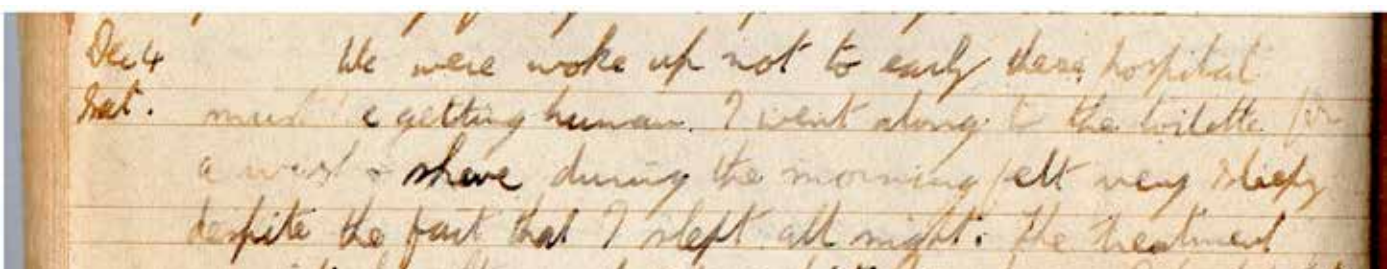 Dec 4 We were woke up not to early these hospital
Sat. must be getting human. I went along to the toilette for
a wash & shave during the morning felt very sleepy
despite the fact that I slept all night. The treatment